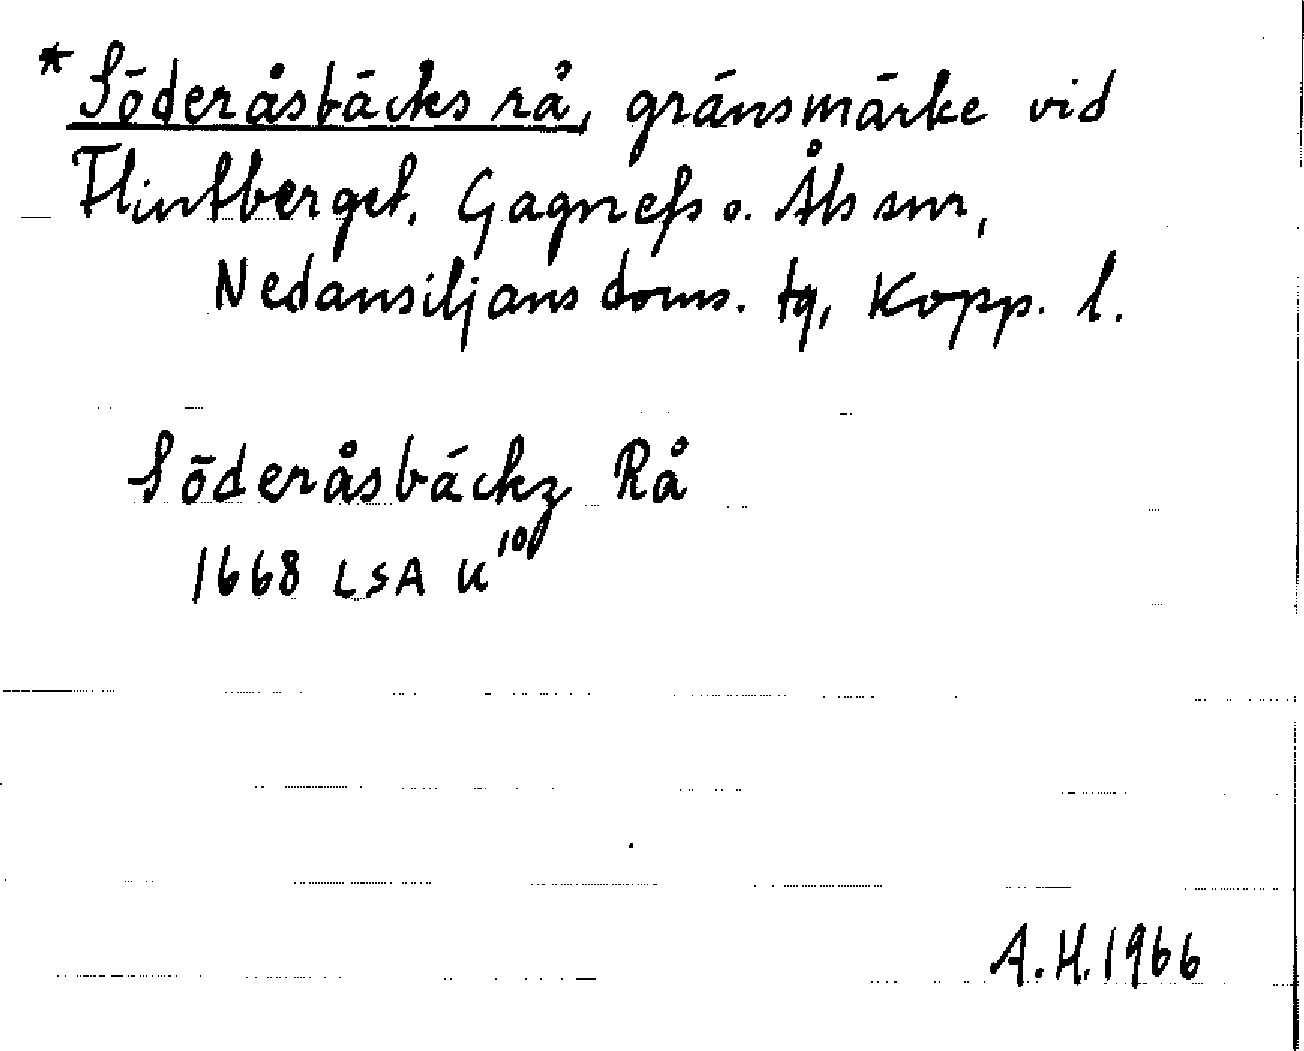 * Söderåsbäcks rå, gränsmärke vid
Flintberget. Gagnefs o. Åls snr,
Nedansiljans doms. tg, Kopp. l.
Söderåsbäckz Rå
1668 LSA U¹⁰
A.H. 1966